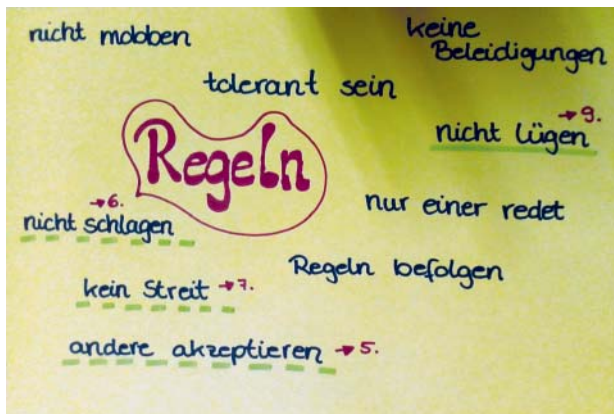 nicht mobben
keine
Beleidigungen
tolerant sein
→9.
nicht lügen
Regeln
→6.
nicht schlagen
nur einer redet
Regeln befolgen
kein Streit →7.
andere akzeptieren →5.